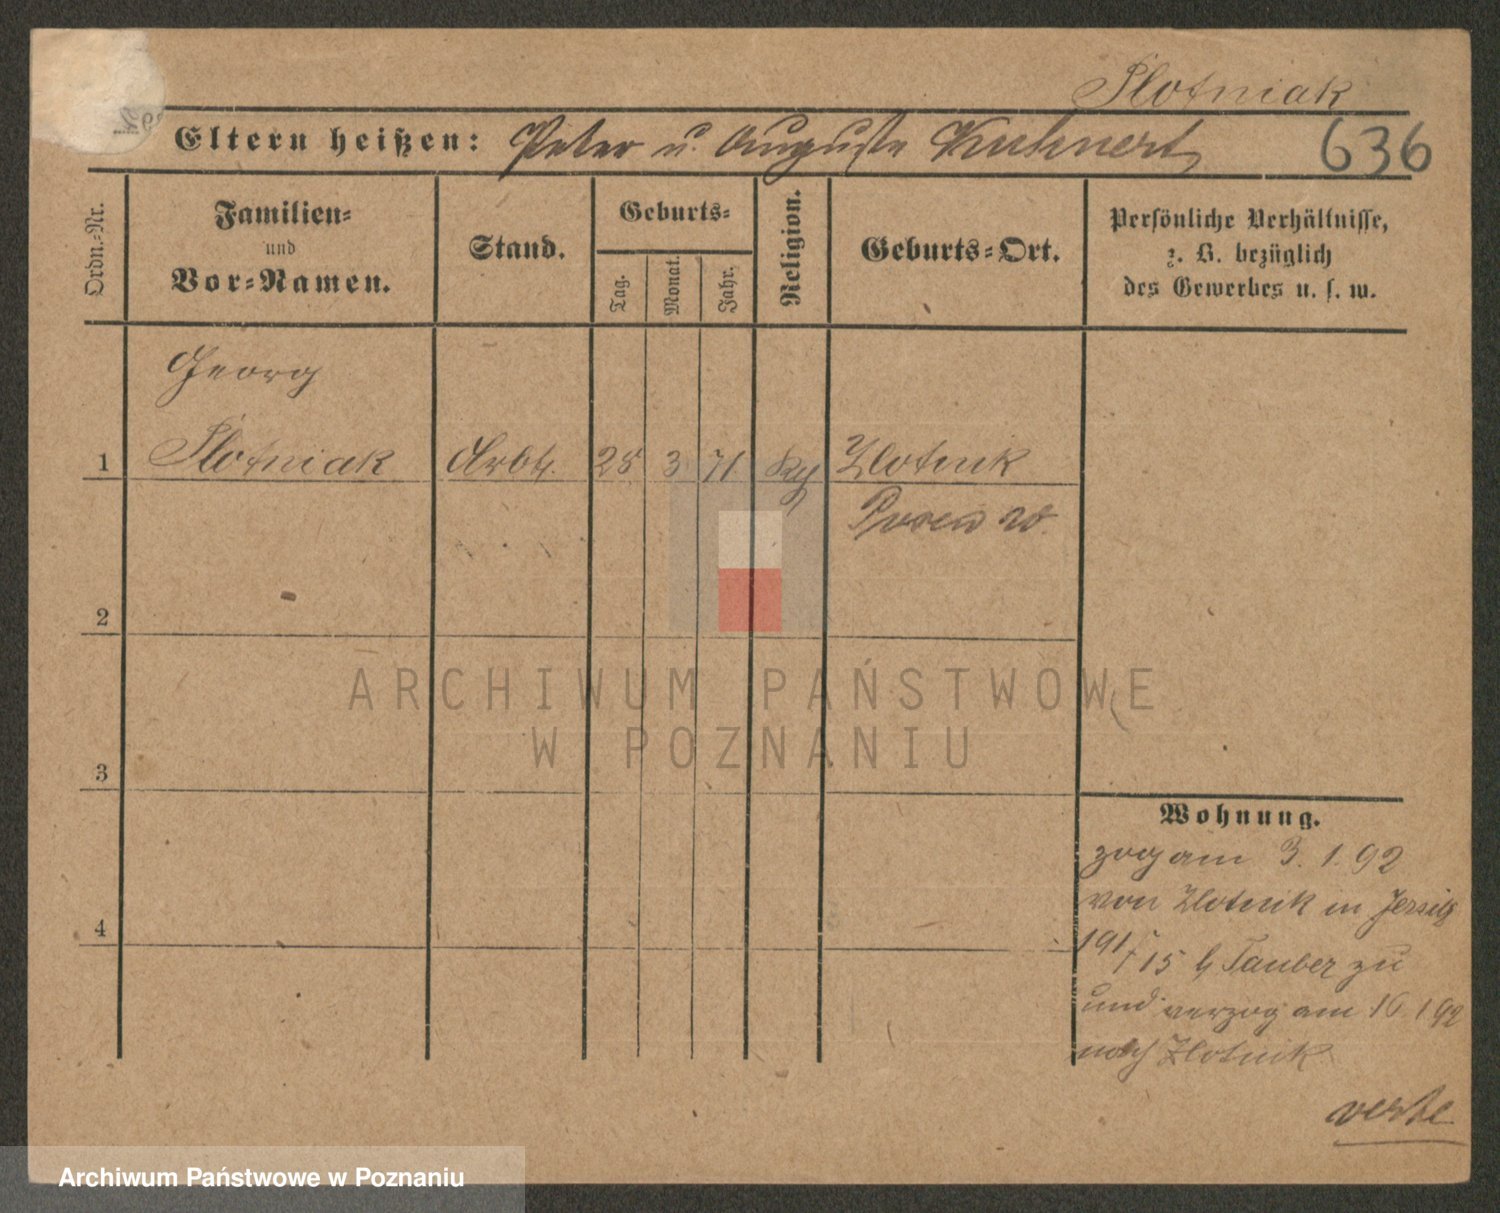 Slotniak
Eltern heißen: Peter u. Auguste Kuhnert
636
Ordn.-Nr.
Familien-
und
Vor-Namen.
Stand.
Geburts-
Tag.
Monat.
Jahr.
Religion.
Geburts-Ort.
Persönliche Verhältnisse,
z. B. bezüglich
des Gewerbes u. s. w.
Georg
1 Slotniak Arbt. 25 3 71 Zlotnik
Posen W.
2
3
4
Wohnung.
zog am 3. 1. 92
von Zlotnik in Jersitz
191/15 b Tauber zu
und verzog am 16 1 92
nach Zlotnik
ARCHIWUM PAŃSTWOWE
W POZNANIU
Archiwum Państwowe w Poznaniu